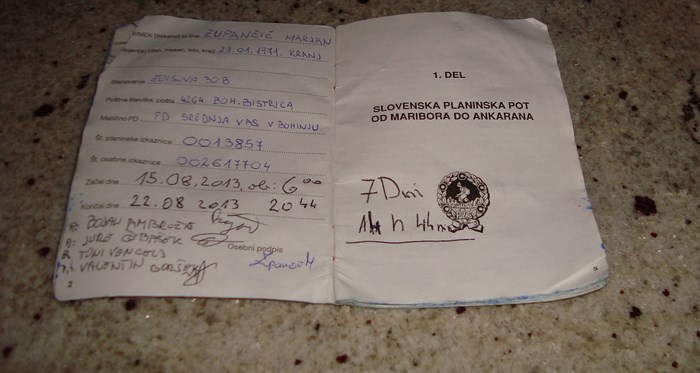 Priimek in ime ZUPANČIČ MARJAN
(dan, mesec, leto, kraj) 28.01.1971. KRANJ
Stanovanje
Poštna številka, pošta 4264 BOH. BISTRICA
Matično PD PD SREDNJA VAS V BOHINJU
Št. planinske izkaznice 0013857
Št. osebne izkaznice 002617704
Začel dne 15.08.2013, ob: 6 00
Končal dne 22.08 2013 20 44
BOJAN AMBROŽIČ
JURE
TONI VENCELJ
VALENTIN
Osebni podpis
2
1. DEL
SLOVENSKA PLANINSKA POT
OD MARIBORA DO ANKARANA
7 Dni
14 h 44 min